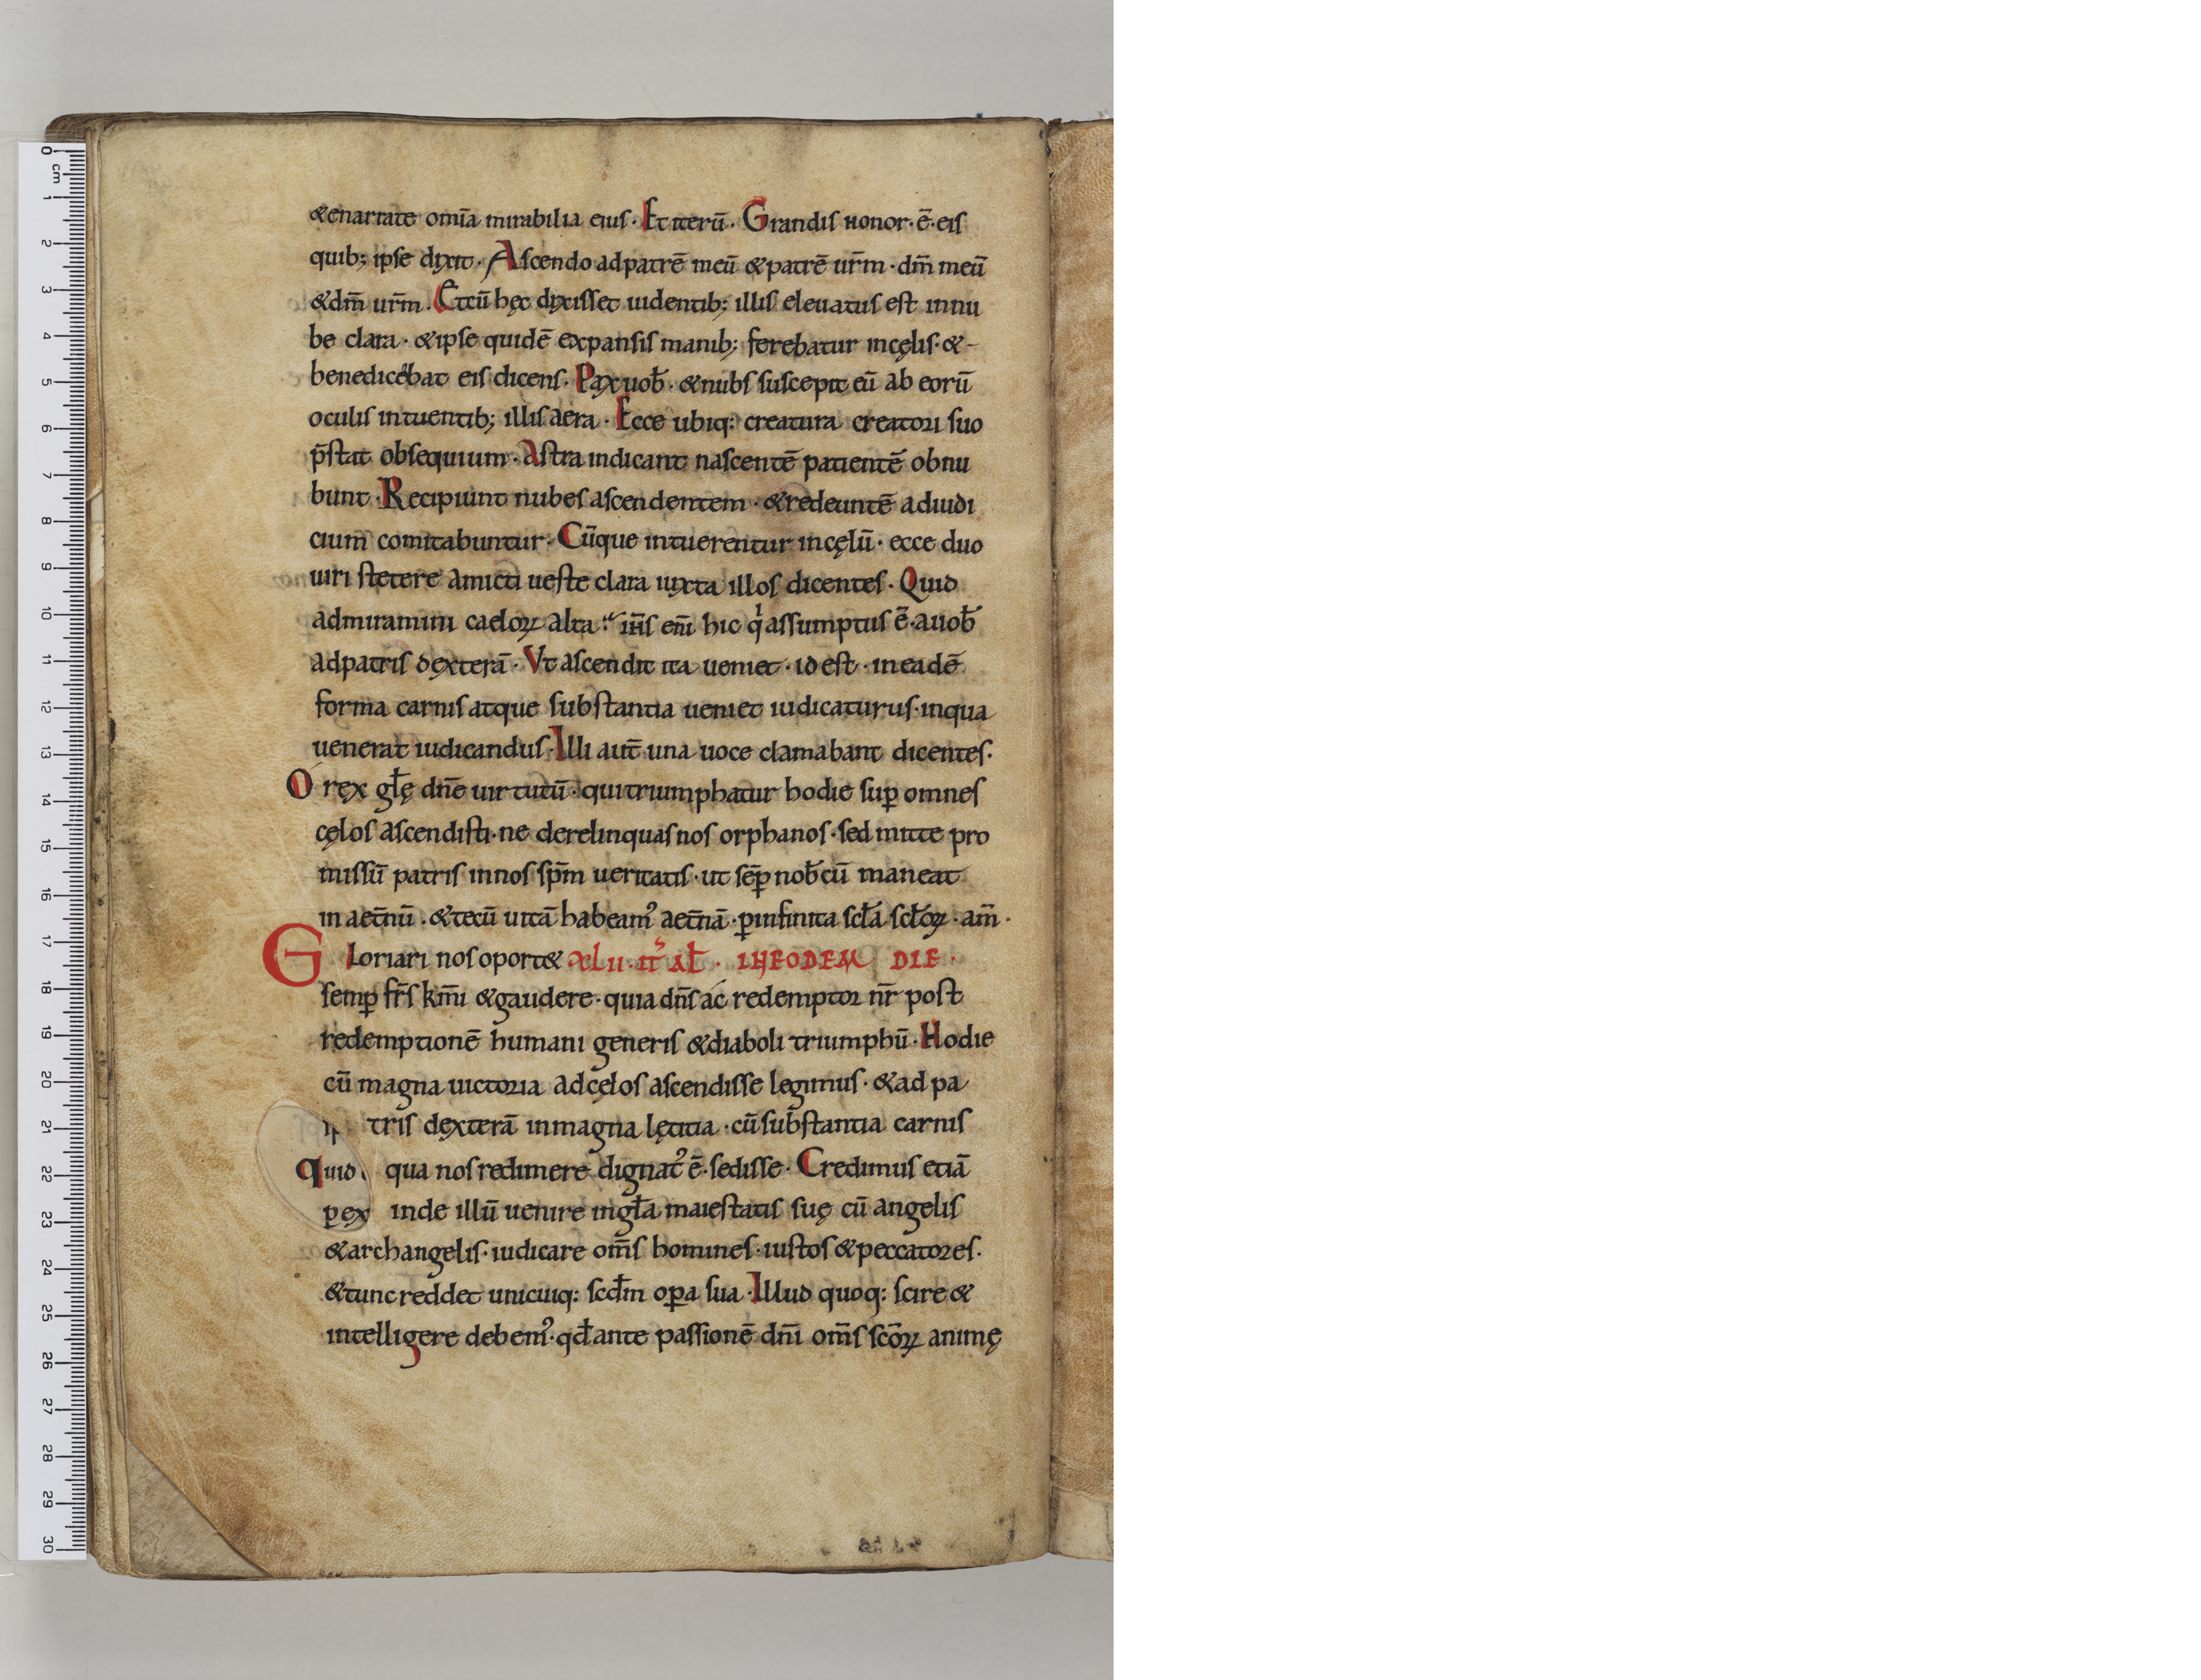 &enarrate om̅ia mirabilia eius· Et iteru̅· Grandis honor·e̅·eis
quib; ipse dixit· Ascendo adpatre̅ meu̅ &patre̅ ur̅m·dm̅ meu̅
&dm̅ ur̅m. Etcu̅ hęc dixisset uidentib; illis eleuatus est innu
be clara· &ipse quide̅ expansis manib; ferebatur incęlis·&-
benedicebat eis dicens. Pax uob̅· &nubs suscepit eu̅ ab eoru̅
oculis intuentib; illis aera· Ecce ubiq: creatura creatori suo
p̅stat obsequium· Astra indicant nascente̅ patiente̅ obnu
bunt·Recipiunt nubes ascendentem·&redeunte̅ adiudi
cium comitabuntur·Cu̅que intuerentur incęlu̅· ecce duo
uiri stetere amicti ueste clara iuxta illos dicentes· Quid
admiramini caeloꝝ alta? ih̅s eni̅ hic qi assumptus e̅·auob̅
adpatris dextera̅· Vt ascendit ita ueniet·id est·ineade̅
forma carnis atque substantia ueniet iudicaturus·inqua
uenerat iudicandus·Illi aut̅ una uoce clamabant dicentes·
O rex gl̅ę dn̅e uirtutu̅·quitriumphatur hodie suꝑ omnes
cęlos ascendisti·ne derelinquas nos orphanos·sed mitte pro
missu̅ patris innos sp̅m ueritatis·ut se̅ꝑ nob̅cu̅ maneat
in aet̅nu̅·&tecu̅ uita̅ habeamꝰ aet̅na̅·ꝑinfinita scl̅a scl̅oꝝ·am̅·
Gloriari nos oport& xlu·it̅ꝰ al̅· INEODEM DIE·
semꝑ fr̅s km̅i &gaudere·quia dn̅s ac redemptor nr̅ post
redemptione̅ humani generis &diaboli triumphu̅·Hodie
cu̅ magna uictoria adcęlos ascendisse legimus·&ad pa
tris dextera̅ inmagna lętitia·cu̅ substantia carnis
qua nos redimere dignatꝰ e̅·sedisse·Credimus etia̅
inde illu̅ uenire ingl̅a maiestatis suę cu̅ angelis
&archangelis·iudicare om̅s homines·iustos &peccatores·
&tunc reddet unicuiq: scd̅m oꝑa sua·Illud quoq: scire &
intelligere debemꝰ·qd̅ ante passione̅ dn̅i om̅s sc̅oꝝ animę